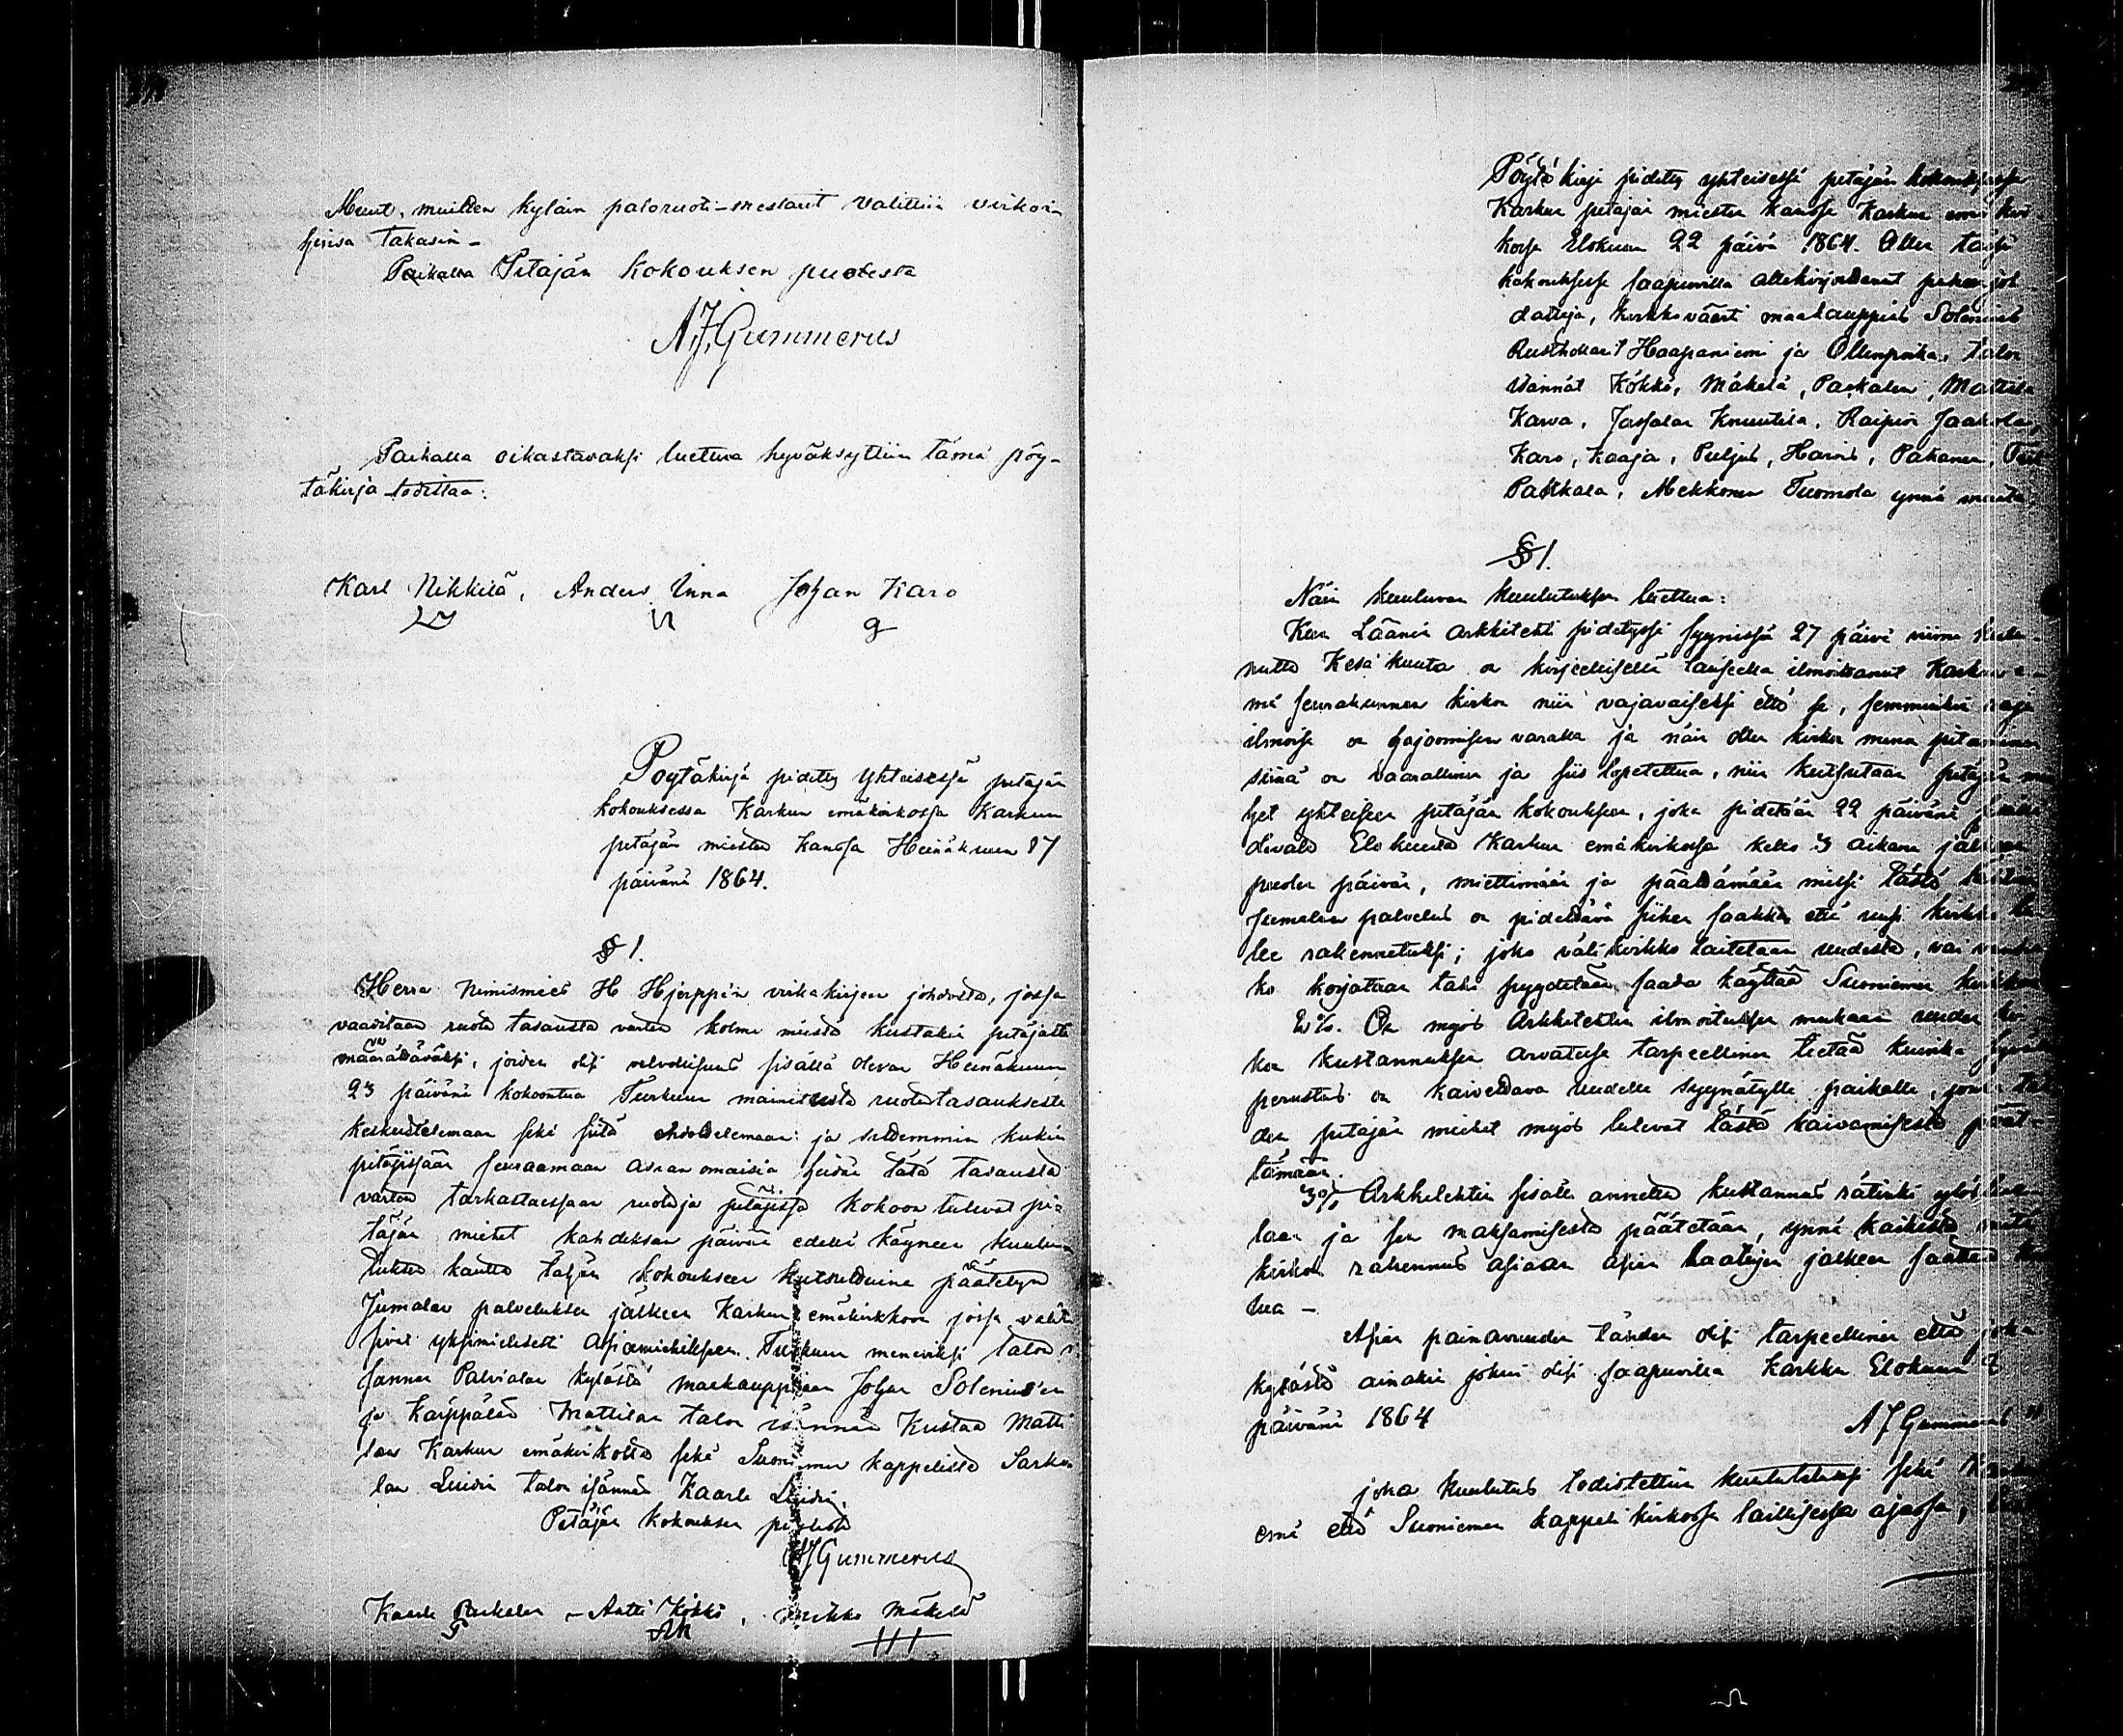 Muut, muitten kyläin paloruoti-mestarit valittiin virkoin
hinsa takasin -
Paikalla Pitäjän kokouksen puolesta
A.J. Gummerus
Paikalla oikastavaksi luettua hyväksyttiin tämä pöy-
täkirja todistaa:
Karl Nikkilä, Anders Unna Johan Karo
Pöytäkirja pidetty yhteisessä pitäjän
kokouksessa Karkun emäkirkossa Karkun
pitäjän miesten kanssa Heinäkuun 17
päivänä 1864.
§ 1.
Herra Nimismies H Hjerppén virkakirjeen johdosta, jossa
vaaditaan ruotu tasausta varten kolme miestä kustakin pitäjästä
määrättäväksi, joiden olisi velvollisuus sisällä olevan Heinäkuun
23 päivänä kokoontua Turkuun mainitusta ruotutasauksesta
keskustelemaan sekä sitä ehdottelemaan: ja sittemmin kukin
pitäjässään seuraamaan asianomaisia heidän tätä tasausta
varten tarkastaessaan ruotuja pitäjissä kokoon tulevat pi-
täjän miehet kahdeksan päivää edellä käyneen kuulu-
tuksen kautta tähän kokoukseen kutsuttuina päätetyn
Jumalan palveluksen jälkeen Karkun emäkirkkoon jossa valit-
sivat yksimielisesti Asiamiehiksen Turkuun meneviksi talon
Palvialan kylästä maakauppiaan Johan Solenius'en
ja Kärppälän Mattilan talon isännän Kustaa Matti
lan Karkun emäkirkosta sekä Suoniemen kappelista Sarkon
lan Luidin talon isännän Kaarle Luidin.
Pitäjän kokouksen puolesta
A J Gummerus
Kaarle Paskalen - Antti Kökkö, Mikko Mäkelä
AK
Pöytäkirja pidetty yhteisessä pitäjän kokouksessa
Karkun pitäjän miesten kanssa Karkun emä kir-
kossa Elokuun 22 päivä 1864. Ollen tässä
kokouksessa saapuvilla allekirjoittanut puheenjoh
dattaja, kirkkoväärti maakauppias Solenius
Rusthollarit Haapaniemi ja Ollinpoika, talon
isännät Kökkö, Mäkelä, Paskalen, Mattila
Karva, Jassalan Knuutila, Raipion Jaakola,
Karo, Kaaja, Puljus, Harris, Pakanen,
Paskala, Mekkonen Tuomola ynnä muita
§ 1.
Näin kuuluvan kuulutuksen luettua:
Kun Läänin arkkitehti pidetyssä syynissä 27 päivä viime kulu-
nutta Kesäkuuta on kirjoituksella lauseella ilmoittanut Karkun e-
mä seurakunnan kirkon niin vajavaiseksi että se, semminkin
ilmoissa on hajoomisen varalla ja näin ollen kirkon menon pitäminen
siinä on vaarallinen ja siis lopetettua, niin kutsutaan pitäjän mie
het yhteiseen pitäjän kokoukseen, joka pidetään 22 päivänä sisällä
olevata Elokuuta Karkun emäkirkossa kello 3 aikana jälkeen
puolen päivän, miettimään ja päättämään missä tästä
Jumalan palvelus on pidettävä siihen saakka että uusi kirkko tu
lee rakennetuksi; joko väli kirkko laitetaan uudesta, vai
ko korjataan tahi pyydetään saada käyttää Suoniemen kirkkoa
2:o/. On myös Arkkitehtin ilmoituksen mukaan uuden kir-
kon kustannuksen arvatessa tarpeellinen tietää kuinka syvälle
perustus on kaivettava uudelle syynätylle paikalle,
den pitäjän miehet myös tulevat tästä kaivamisesta päät-
tämään.
3:o/. Arkkitehtin sisälle annettu kustannus räkinki
taan ja sen maksamisesta päätetään, ynnä kaikesta mitä
kirkon rakennus asiaan asian haarain jälkeen saattaa
lua -
Asian painavuuden tähden olisi tarpeellinen että joka
kylästä ainakin joku olisi saapuvilla Karkku Elokuun 7
päivänä 1864
A J Gummerus
joka kuulutus todistettiin kuulutetuksi sekä Karkun
emä että Suoniemen kappeli kirkossa laillisessa ajassa,